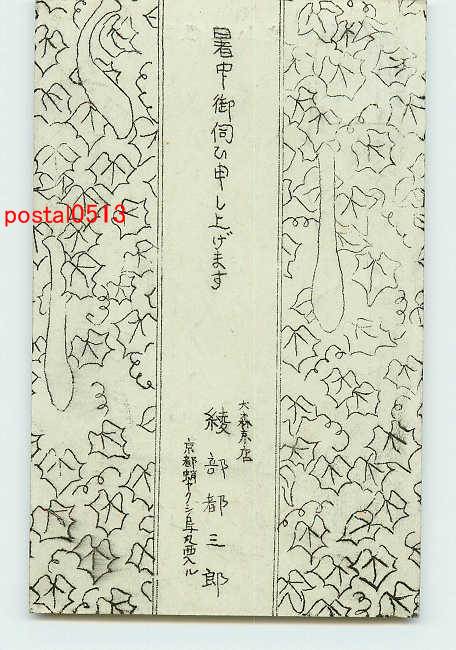 暑中御伺ひ申し上げます
大森京店
綾部都三郎
京都蛸ヤクシ烏丸西入ル
postal0513